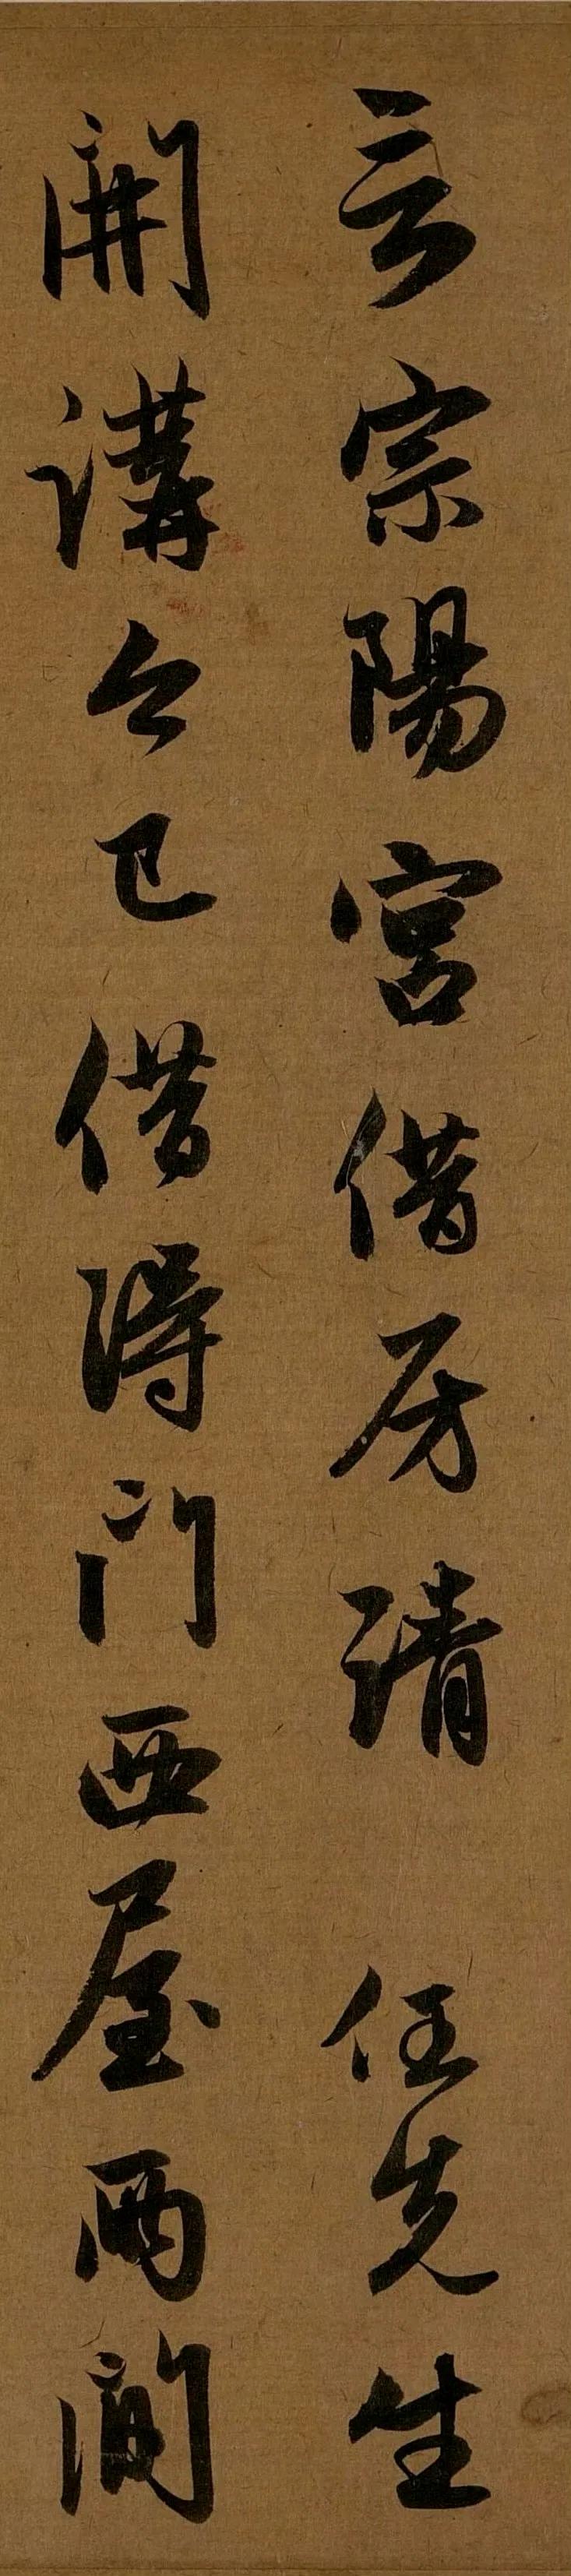 云宗陽宮借房請　任先生
開講今已借得門西屋兩間